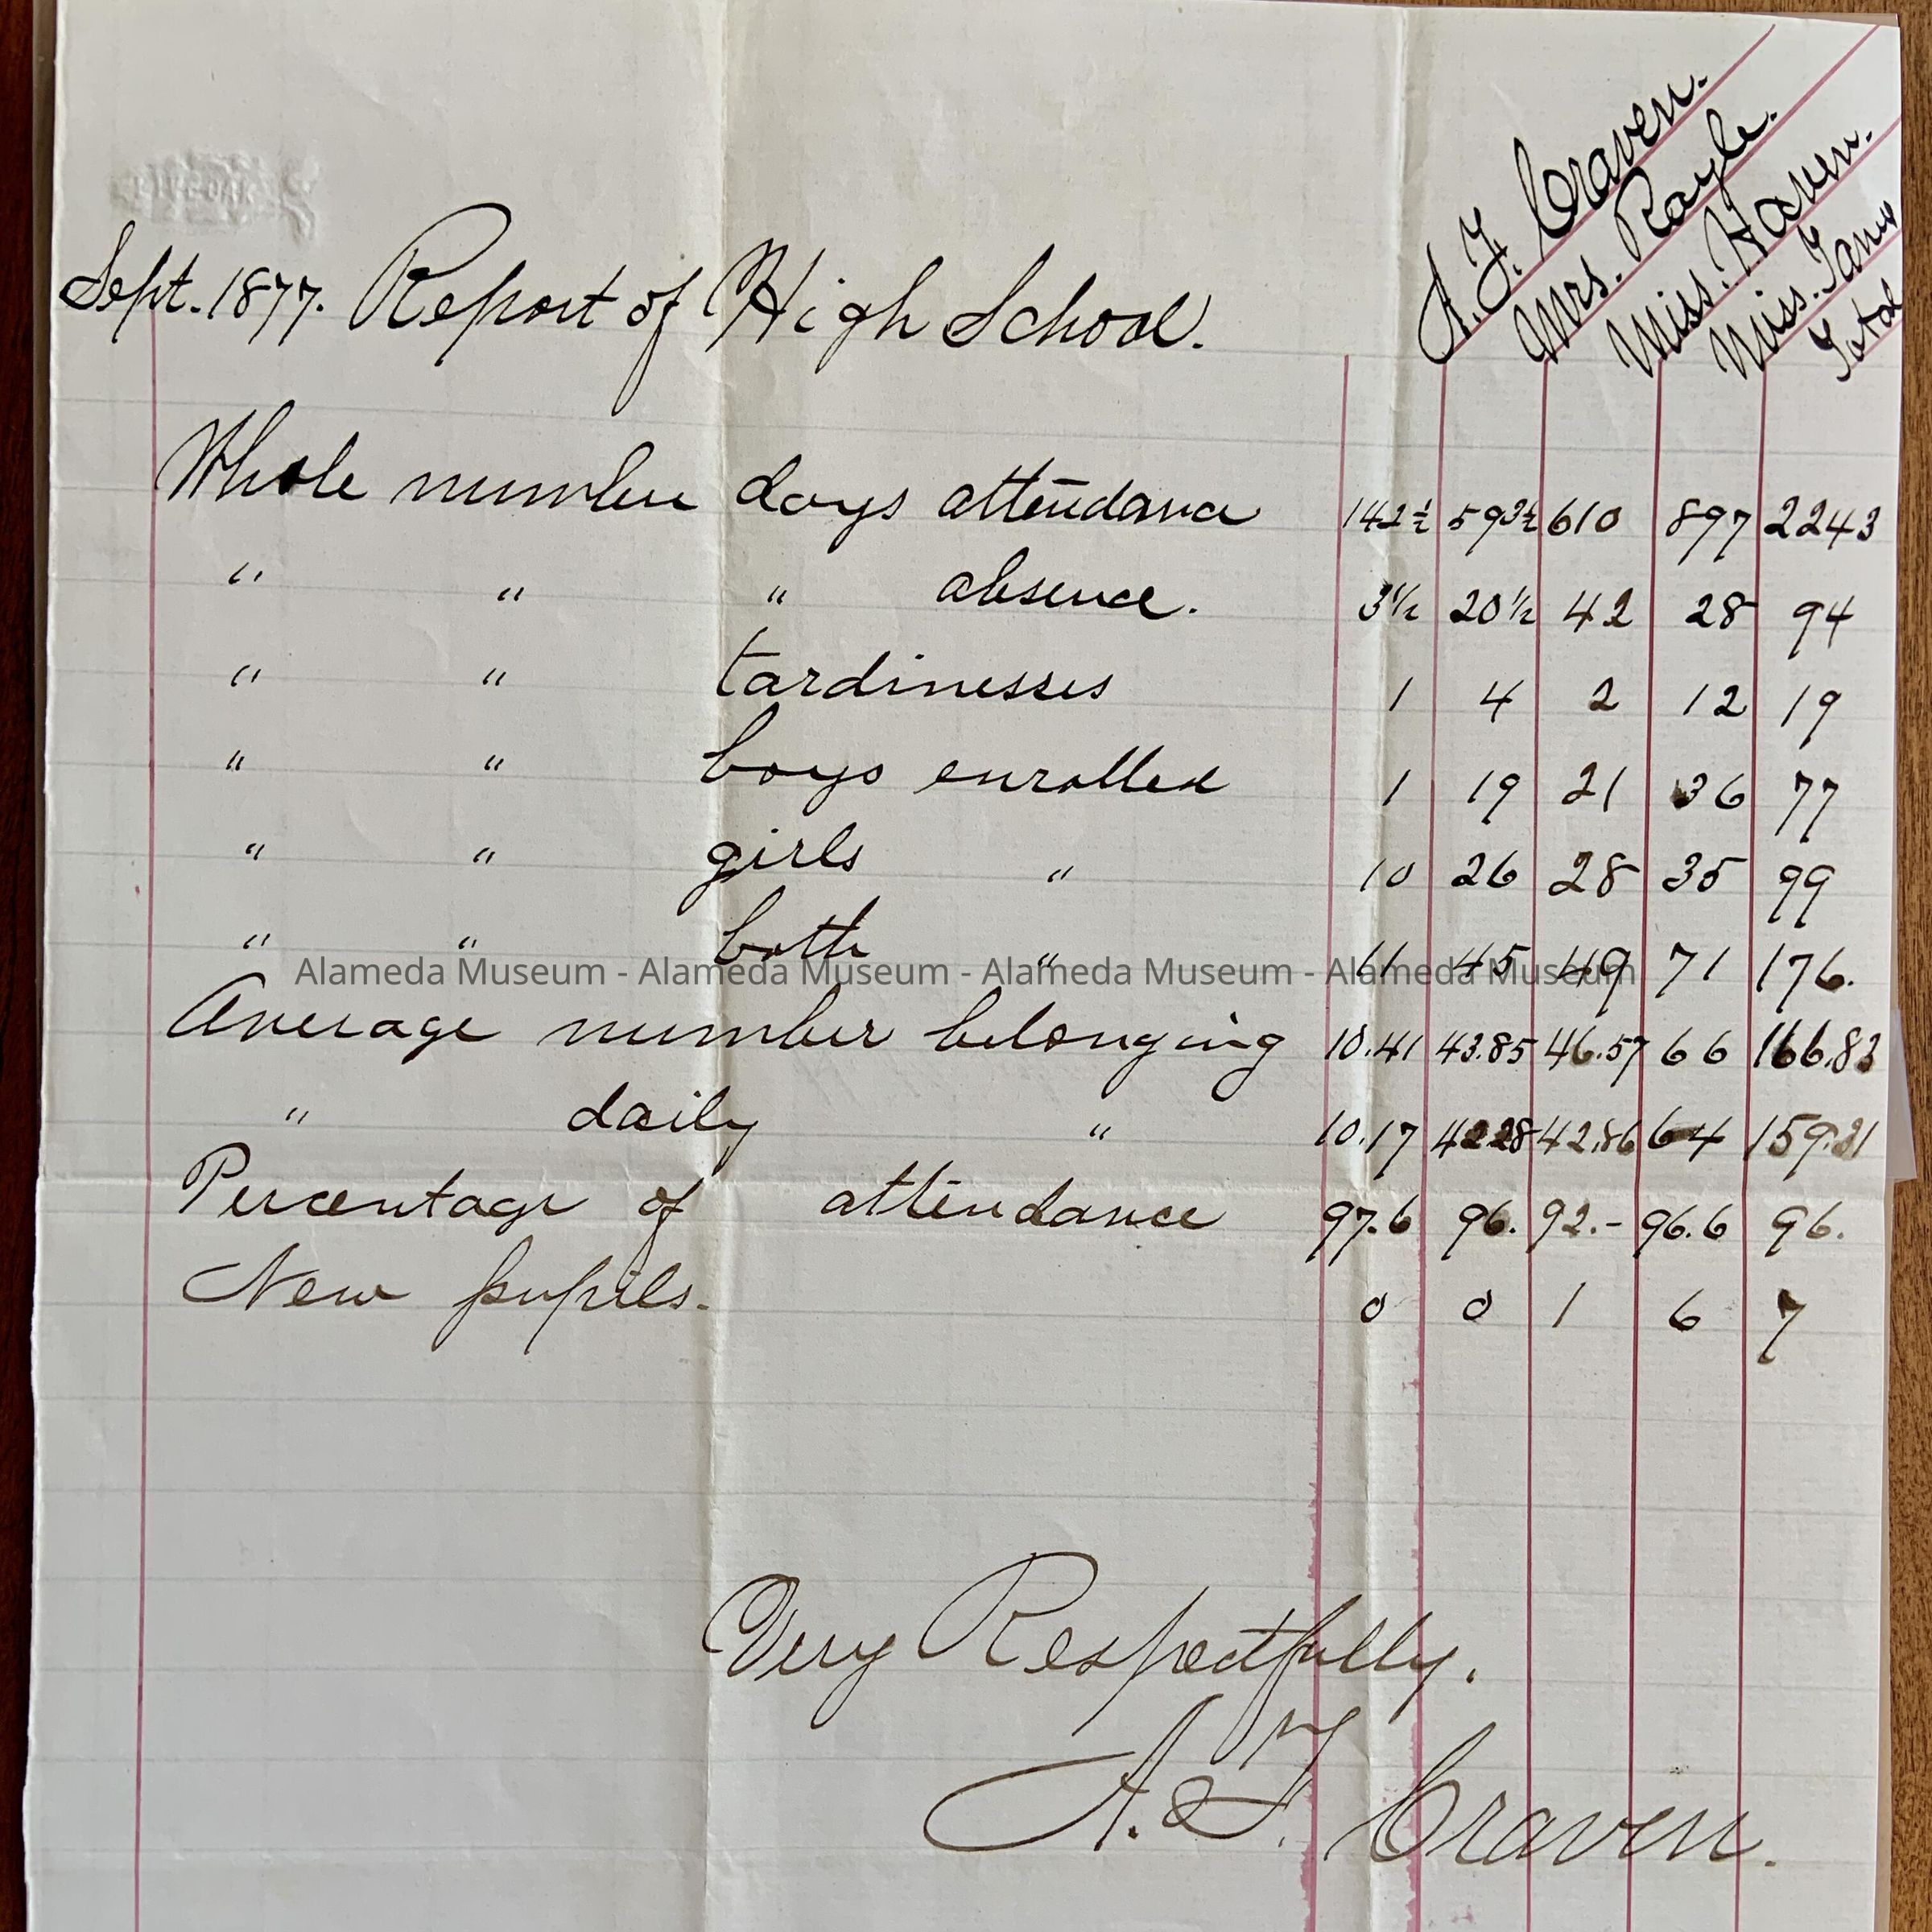 A. F. Craven.
Mrs. Rayle.
Miss. Haven.
Miss.
Total
Sept. 1877. Report of High School.
Whole number days attendance 142½ 593½ 610 897 2243
" " " absence. 3½ 20½ 42 28 94
" " tardinesses 1 4 2 12 19
" " boys enrolled 1 19 21 36 77
" " girls " 10 26 28 35 99
" " both " 11 45 49 71 176.
Alameda Museum - Alameda Museum - Alameda Museum - Alameda Museum
Average number belonging 10.41 43.85 46.57 66 166.83
" daily " 10.17 42.28 42.86 64 159.31
Percentage of attendance 97.6 96. 92.- 96.6 96.
New pupils. 0 0 1 6 7
Very Respectfully.
A. F. Craven.